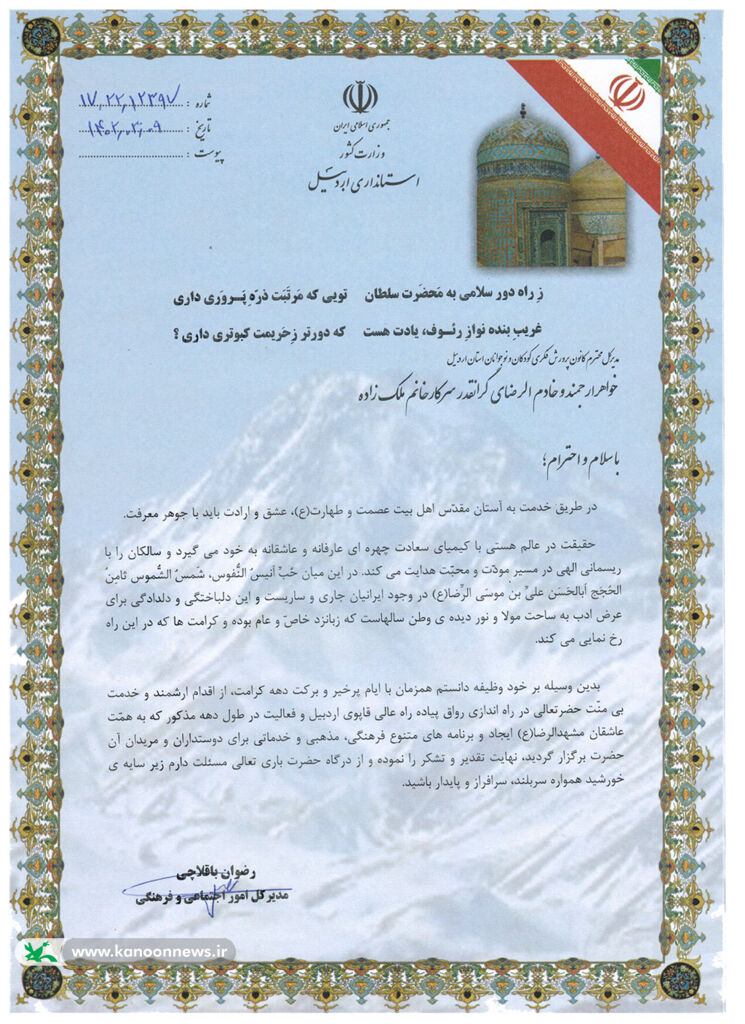 شماره : ۱۷,۲۲,۱۲۳۹۷
تاریخ : ۱۴۰۲,۰۳,۰۹
پیوست :
جمهوری اسلامی ایران
وزارت کشور
استانداری اردبیل
زِ راه دور سلامی به مَحضَرت سلطان تویی که مَرتَبَت ذرّه پَـروَری داری
غریبِ بنده نوازِ رئـوف، یادت هست که دورتر زِحَریمت کبوتری داری ؟
مدیرکل محترم کانون پرورش فکری کودکان و نوجوانان استان اردبیل
خواهر ارجمند و خادم الرضای گرانقدر سرکار خانم ملک زاده
با سلام و احترام؛
در طریق خدمت به آستان مقدّس اهل بیت عصمت و طهارت(ع)، عشق و ارادت باید با جوهر معرفت.
حقیقت در عالم هستی با کیمیای سعادت چهره ای عارفانه و عاشقانه به خود می گیرد و سالکان را با
ریسمانی الهی در مسیر مودّت و محبّت هدایت می کند. در این میان حُبِّ اَنیسُ النُّفوس، شَمسُ الشُّموس ثامِنُ
الحُجَج اَبالحَسَن علیِّ بن موسَی الرِّضا(ع) در وجود ایرانیان جاری و ساریست و این دلباختگی و دلدادگی برای
عرض ادب به ساحت مولا و نور دیده ی وطن سالهاست که زبانزد خاصّ و عام بوده و کرامت ها که در این راه
رخ نمایی می کند.
بدین وسیله بر خود وظیفه دانستم همزمان با ایام پرخیر و برکت دهه کرامت، از اقدام ارشمند و خدمت
بی منّت حضرتعالی در راه اندازی رواق پیاده راه عالی قاپوی اردبیل و فعالیت در طول دهه مذکور که به همّت
عاشقان مشهدالرضا(ع) ایجاد و برنامه های متنوع فرهنگی، مذهبی و خدماتی برای دوستداران و مریدان آن
حضرت برگزار گردید، نهایت تقدیر و تشکر را نموده و از درگاه حضرت باری تعالی مسئلت دارم زیر سایه ی
خورشید همواره سربلند، سرافراز و پایدار باشید.
رضوان باقلاچی
مدیرکل امور اجتماعی و فرهنگی
www.kanoonnews.ir